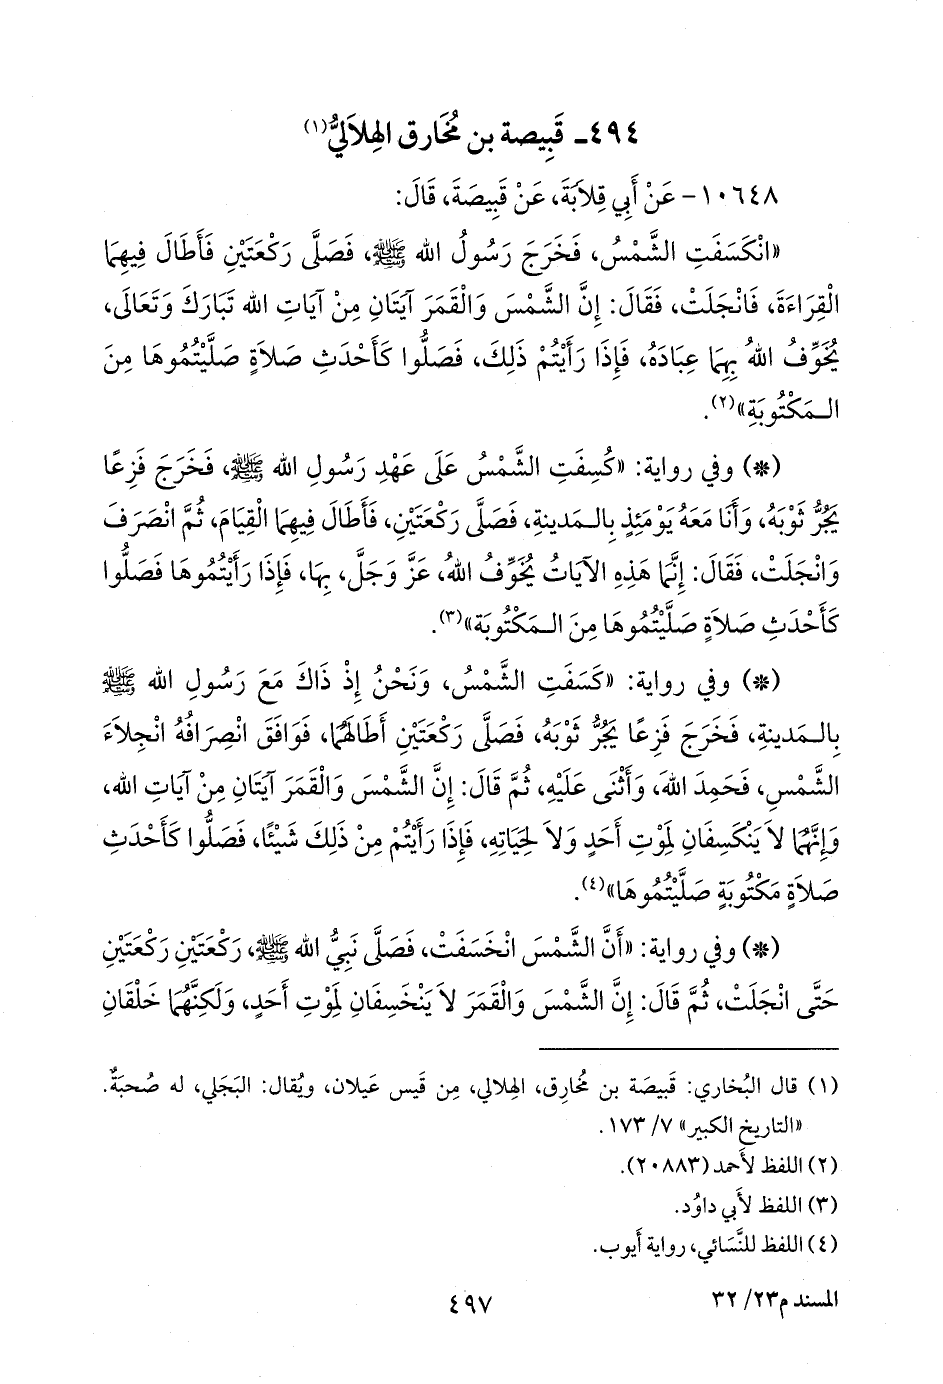 ٤٩٤ـ قَبِيصة بن مُخَارق الهِلاَليُّ(١)
١٠٦٤٨- عَنْ أَبِي قِلاَبَةَ، عَنْ قَبِيصَةَ، قَالَ:
«انْكَسَفَتِ الشَّمْسُ، فَخَرَجَ رَسُولُ الله ﷺ، فَصَلَّى رَكْعَتَيْنِ فَأَطَالَ فِيهِمَا
الْقِرَاءَةَ، فَانْجَلَتْ، فَقَالَ: إِنَّ الشَّمْسَ وَالْقَمَرَ آيَتَانِ مِنْ آيَاتِ الله تَبَارَكَ وَتَعَالَى،
يُخَوِّفُ اللهُ بِهِمَا عِبَادَهُ، فَإِذَا رَأَيْتُمْ ذَلِكَ، فَصَلُّوا كَأَحْدَثِ صَلاَةٍ صَلَّيْتُمُوهَا مِنَ
الـمَكْتُوبَةِ»(٢).
(*) وفي رواية: «كُسِفَتِ الشَّمْسُ عَلَى عَهْدِ رَسُولِ الله ﷺ، فَخَرَجَ فَزِعًا
يَجُرُّ ثَوْبَهُ، وَأَنَا مَعَهُ يَوْمَئِذٍ بِالـمَدينةِ، فَصَلَّى رَكْعَتَيْنِ، فَأَطَالَ فِيهِمَا الْقِيَامَ، ثُمَّ انْصَرَفَ
وَانْجَلَتْ، فَقَالَ: إِنَّمَا هَذِهِ الآيَاتُ يُخَوِّفُ اللهُ، عَزَّ وَجَلَّ، بِهَا، فَإِذَا رَأَيْتُمُوهَا فَصَلُّوا
كَأَحْدَثِ صَلاَةٍ صَلَّيْتُمُوهَا مِنَ الـمَكْتُوبَة»(٣).
(*) وفي رواية: «كَسَفَتِ الشَّمْسُ، وَنَحْنُ إِذْ ذَاكَ مَعَ رَسُولِ الله ﷺ
بِالـمَدينةِ، فَخَرَجَ فَزِعًا يَجُرُّ ثَوْبَهُ، فَصَلَّى رَكْعَتَيْنِ أَطَالَهُمَا، فَوَافَقَ انْصِرَافُهُ انْجِلاَءَ
الشَّمْسِ، فَحَمِدَ اللهَ، وَأَثْنَى عَلَيْهِ، ثُمَّ قَالَ: إِنَّ الشَّمْسَ وَالْقَمَرَ آيَتَانِ مِنْ آيَاتِ الله،
وَإِنَّهُمَا لاَ يَنْكَسِفَانِ لِمَوْتِ أَحَدٍ وَلاَ لِحَيَاتِهِ، فَإِذَا رَأَيْتُمْ مِنْ ذَلِكَ شَيْئًا، فَصَلُّوا كَأَحْدَثِ
صَلاَةٍ مَكْتُوبَةٍ صَلَّيْتُمُوهَا»(٤).
(*) وفي رواية: «أَنَّ الشَّمْسَ انْخَسَفَتْ، فَصَلَّى نَبِيُّ الله ﷺ، رَكْعَتَيْنِ رَكْعَتَيْنِ
حَتَّى انْجَلَتْ، ثُمَّ قَالَ: إِنَّ الشَّمْسَ وَالْقَمَرَ لاَ يَنْخَسِفَانِ لِمَوْتِ أَحَدٍ، وَلَكِنَّهُمَا خَلْقَانِ
(١) قال البُخاري: قَبيصَة بن مُخارِق، الهِلالي، مِن قَيس عَيلان، ويُقال: البَجَلي، له صُحبَةٌ.
«التاريخ الكبير» ٧/ ١٧٣.
(٢) اللفظ لأَحمد (٢٠٨٨٣).
(٣) اللفظ لأَبي داوُد.
(٤) اللفظ للنَّسَائي، رواية أَيوب.
المسند م٢٣/ ٣٢
٤٩٧